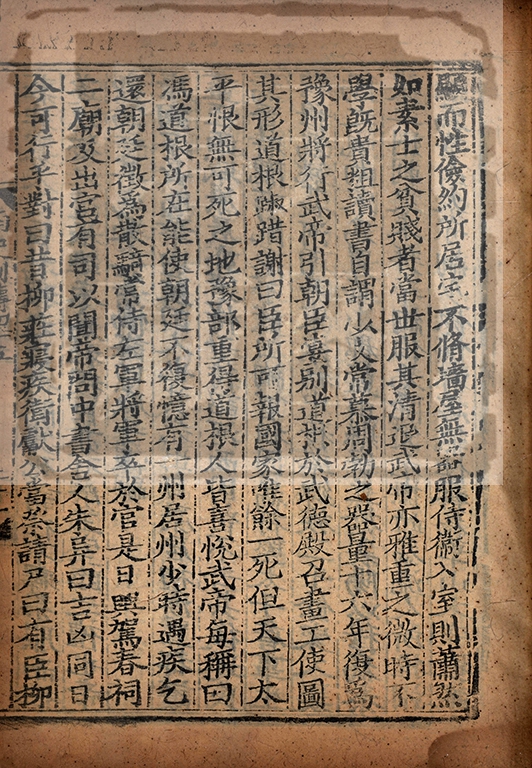 顯而性儉約所居宅不脩墻屋無器服侍衞入室則蕭然
如素士之貧賤者當世服其清退武帝亦雅重之微時不
學旣貴粗讀書自謂少文常慕周勃之器量十六年復爲
豫州將行武帝引朝臣宴别道根於武德殿召畫工使圖
其形道根踧踖謝曰臣所可報國家惟餘一死但天下太
平恨無可死之地豫部重得道根人皆喜悅武帝每稱曰
馮道根所在能使朝廷不復憶有一州居州少時遇疾乞
還朝廷徵爲散騎常侍左軍將軍卒於官是日輿駕春祠
二廟及出宮有司以聞帝問中書舍人朱异曰吉凶同日
今可行乎對曰昔柳莊寢疾衛獻公當祭請尸曰有臣柳